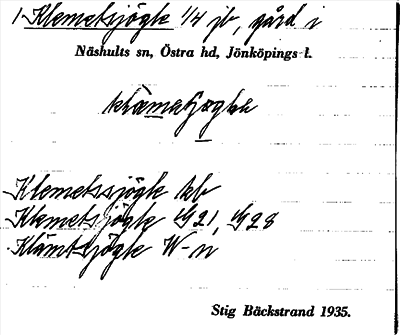 1 Klemetsjögle 1/4 jb, gård i
Näshults sn, Östra hd, Jönköpings l.
Klemetssjögle kb
Klemetsjögle G21, G28
Klämtsjögle W-n
Stig Bäckstrand 1935.